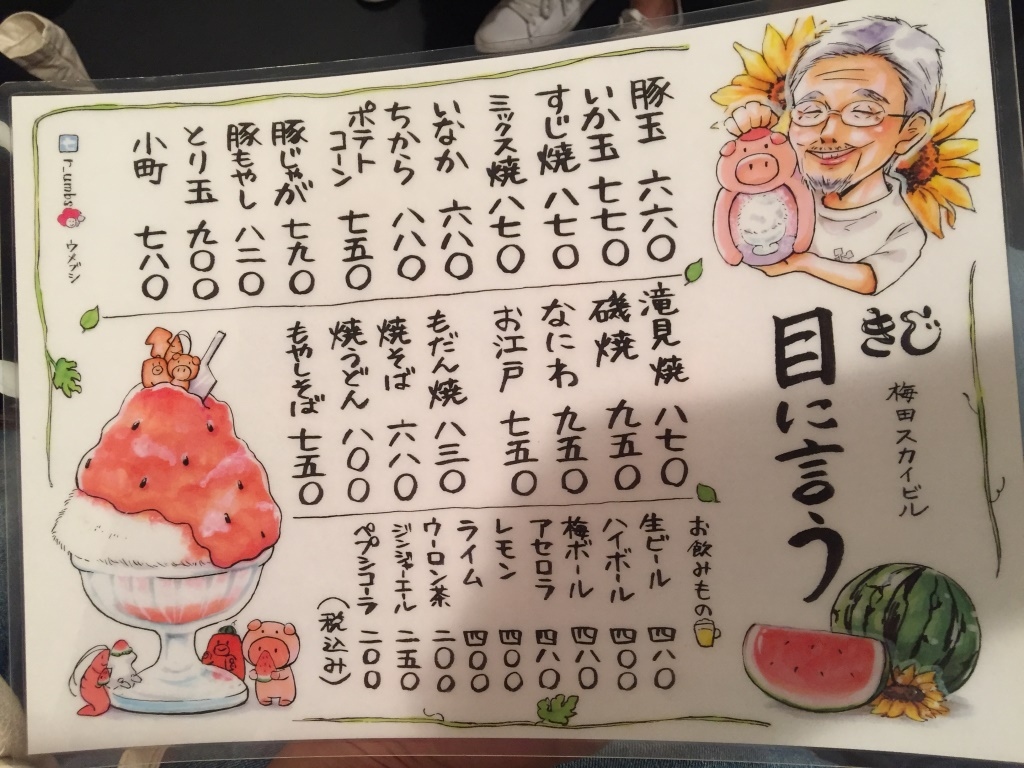 きじ
梅田スカイビル
目に言う
豚玉 六六〇
いか玉 七七〇
すじ焼 八七〇
ミックス焼 八七〇
いなか 六八〇
ちから 八八〇
ポテト
コーン 七五〇
豚じゃが 七九〇
豚もやし 八二〇
とり玉 九〇〇
小町 七八〇
滝見焼 八七〇
磯焼 九五〇
なにわ 九五〇
お江戸 七五〇
もだん焼 八三〇
焼そば 六八〇
焼うどん 八〇〇
もやしそば 七五〇
お飲みもの
生ビール 四八〇
ハイボール 四〇〇
梅ボール 四八〇
アセロラ 四八〇
レモン 四〇〇
ライム 四〇〇
ウーロン茶 二〇〇
ジンジャーエル 二五〇
ペプシコーラ 二〇〇
(税込み)
ウメブシ